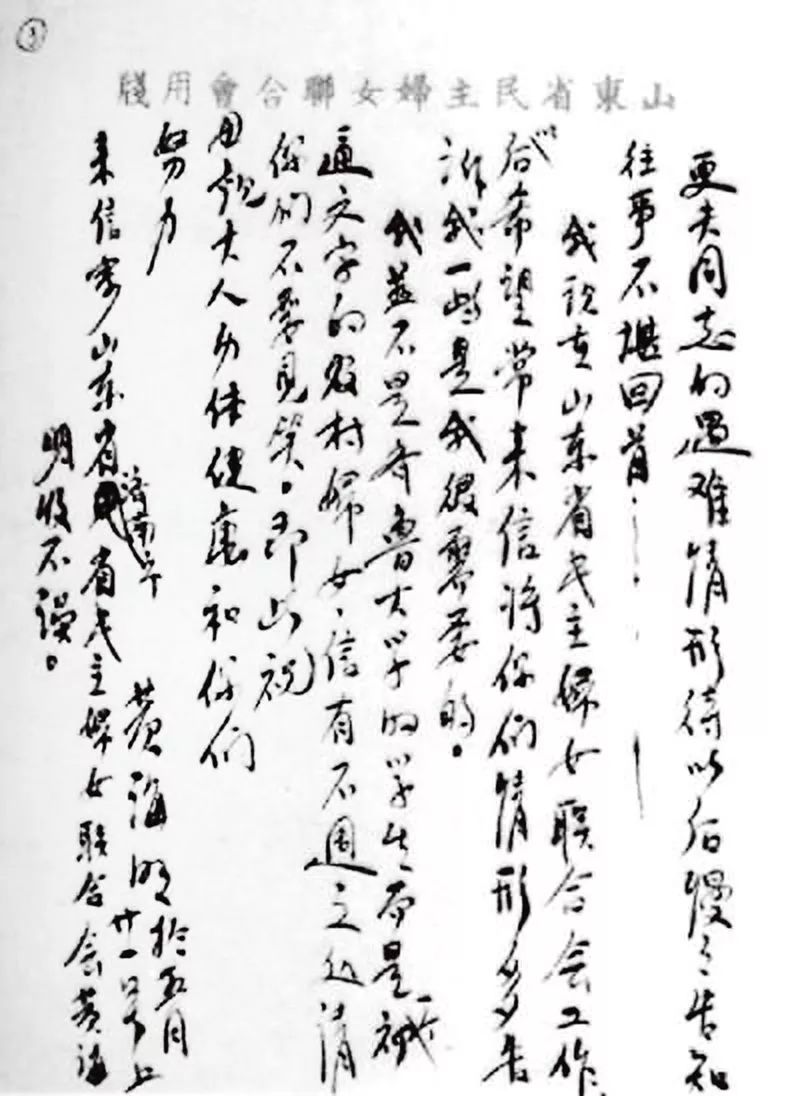 ③
山東省民主婦女聯合會用牋
更夫同志的遇难情形待以后慢々告知
往事不堪回首……
我现在山东省民主婦女联合会工作
以后希望常来信将你们情形多告
诉我一些是我很需要的。
我並不是齐鲁大学的学生而是一个
通文字的农村婦女、信有不週之处请
你们不要見笑。即此祝
母親大人身体健康和你们
努力
黄海明於五月
廿一日早上
济南市
来信寄山东省省民主婦女联合会黄海
明收不误。